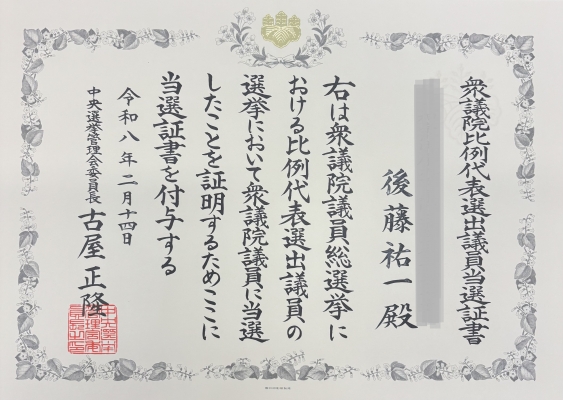 衆議院比例代表選出議員当選証書
後藤祐一殿
右は衆議院議員総選挙に
おける比例代表選出議員の
選挙において衆議院議員に当選
したことを証明するためここに
当選証書を付与する
令和八年二月十四日
中央選挙管理会委員長 古屋正隆